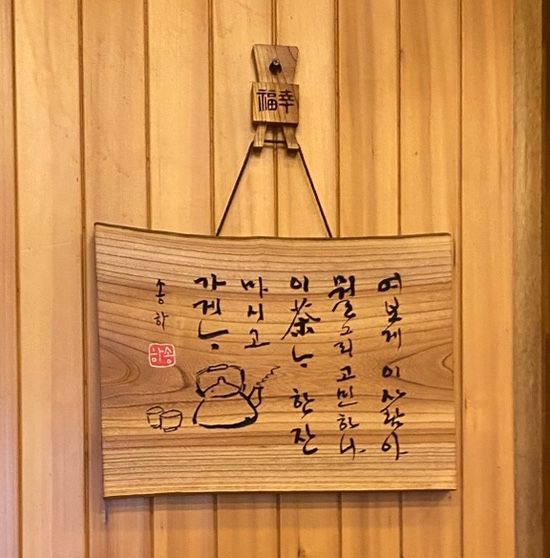 幸福
여보게 이사람아
뭘 그리 고민하나
이 茶나 한 잔
마시고
가게나
송하
송하